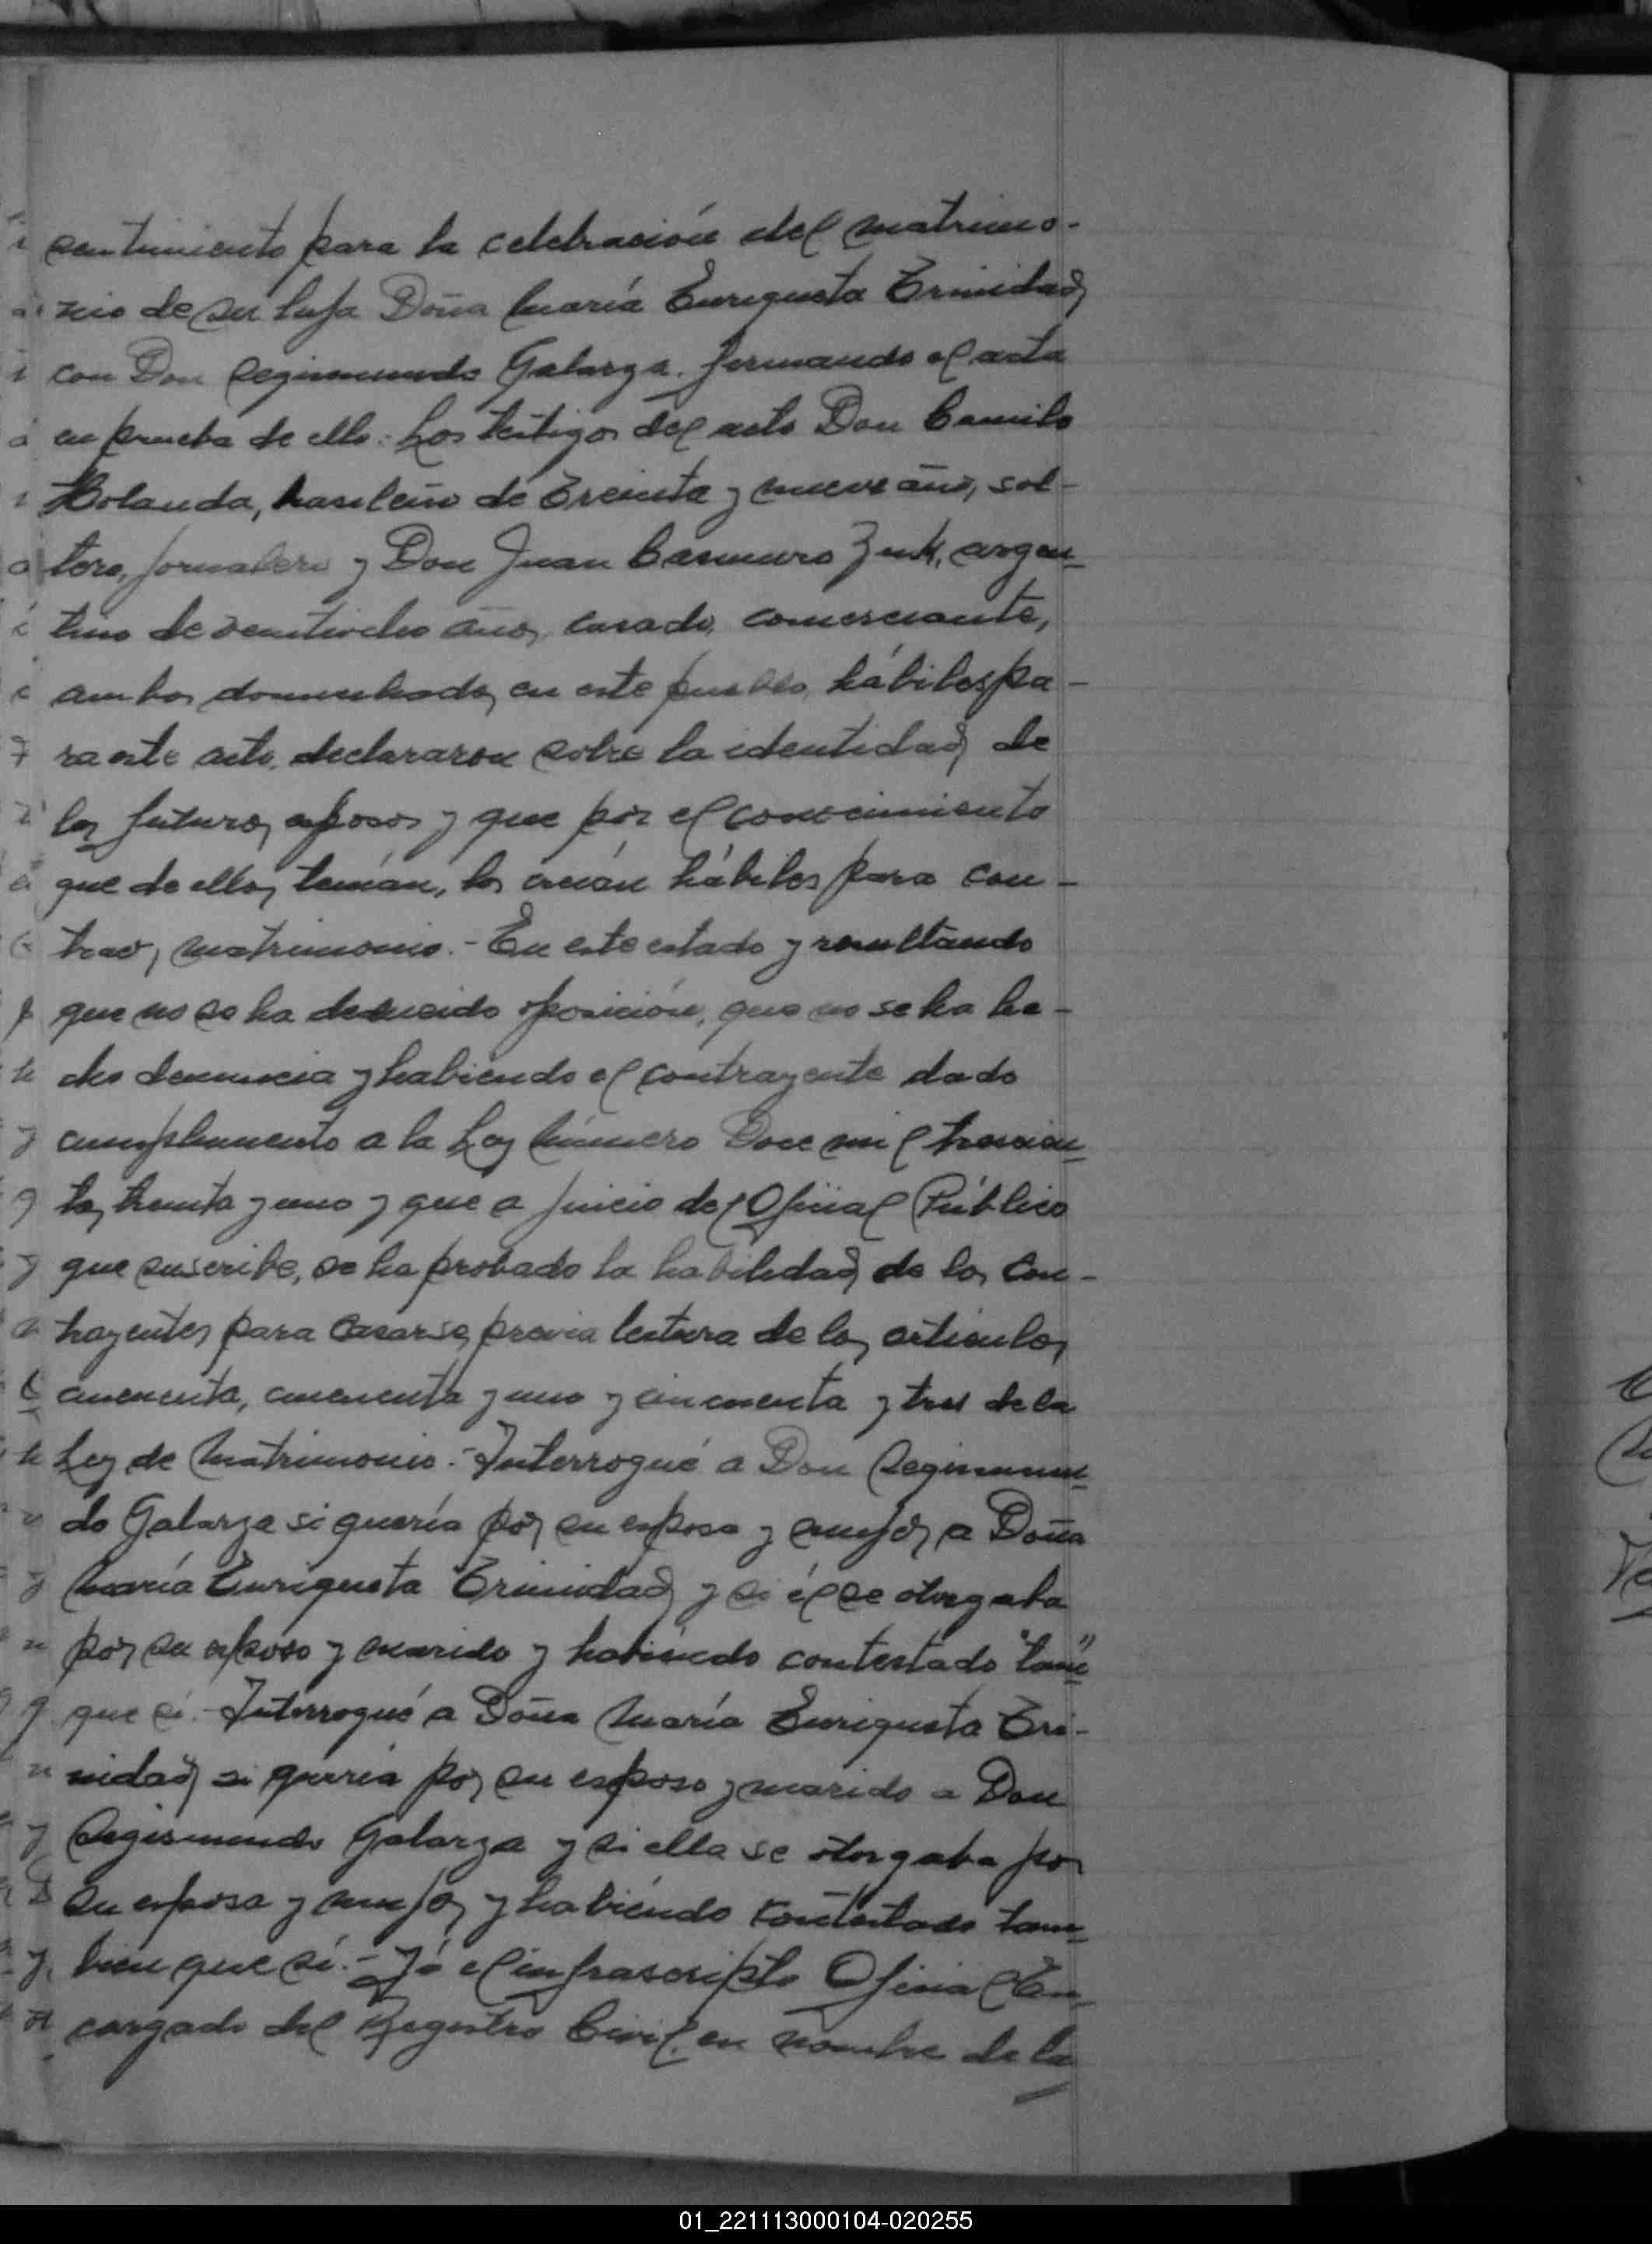 sentimiento para la celebración del matrimo-
nio de su hija Doña María Enriqueta Trinidad
con Don Segismundo Galarza, firmando el acta
en prueba de ello. Los testigos del acto Don Camilo
Holanda, brasileño de treinta y nueve años, sol-
tero, jornalero y Don Juan Casimiro Zuk, argen-
tino de veintiocho años, casado, comerciante,
ambos domiciliados en este pueblo, hábiles pa-
ra este acto, declararon sobre la identidad de
los futuros esposos y que por el conocimiento
que de ellos tenían, los creían hábiles para con-
traer matrimonio.- En este estado y resultando
que no se ha deducido oposición, que no se ha he-
cho denuncia y habiendo el contrayente dado
cumplimiento a la Ley número Doce mil trescien-
tos treinta y uno y que a juicio del Oficial Público
que suscribe, se ha probado la habilidad de los con-
trayentes para casarse, previa lectura de los artículos
cincuenta, cincuenta y uno y cincuenta y tres de la
Ley de Matrimonio.- Interrogué a Don Segismun-
do Galarza si quería por su esposa y mujer a Doña
María Enriqueta Trinidad y si él se otorgaba
por su esposo y marido y habiendo contestado "tam"
que sí.- Interrogué a Doña María Enriqueta Tri-
nidad si quería por su esposo y marido a Don
Segismundo Galarza y si ella se otorgaba por
su esposa y mujer y habiendo contestado tam-
bien que sí.- Yó el infrascripto Oficial En-
cargado del Registro Civil, en nombre de la
01_221113000104-020255